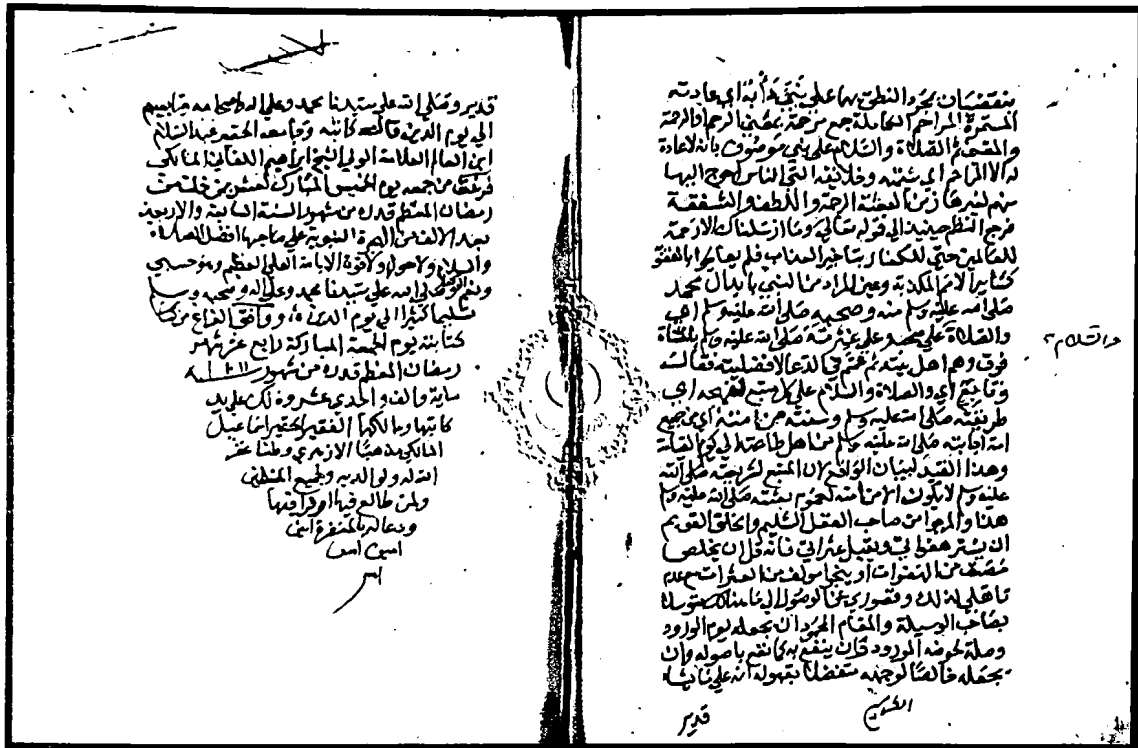 ينقضيان بمجرد النطق بها على نبي دأبه اي عادته
المستمرة المراحم الكاملة جمع مرحمة بمعنى الرحم او الرقة
والمعنى ثم الصلاة والسلام على نبي موصوف بانه لا عادة
له الا المراحم اي بثته وخلائقه التي الناس احوج اليها
منهم لغيرها من العظة الرحمة واللطف والشفقة
فرجع النظم حينئذ الى قوله تعالى وما ارسلناك الا رحمة
للعالمين حتى للكفار بتأخير العذاب فلم يعاجلوا بالعقوبة
كسائر الامم المكذبة وعين المراد من النبي بابدال محمد
صلى الله عليه وسلم منه وصحبه صلى الله عليه وسلم اي
والصلاة على صحبه وعلى عترته صلى الله عليه وسلم بالمثناة
والسلام
فوق وهم اهل بيته ثم عمم في الدعا لافضليته فقال
وتابع اي والصلاة والسلام على كل متبع لنهجه اي
طريقته صلى الله عليه وسلم وسنته من امته اي جميع
امة اجابته صلى الله عليه وسلم من اهل طاعته الى يوم القيامة
وهذا القيد لبيان الواقع لان المتبع لشريعته صلى الله
عليه وسلم لا يكون الا من امته لعموم بعثته صلى الله عليه وسلم
هذا والمرجو من صاحب العقل السليم والخلق القويم
ان يستر هفواتي ويقيل عثراتي فانه قل ان يخلص
مصنف من الهفوات او ينجو مولف من العثرات مع عدم
تاهلي لذلك وقصوري عن الوصول الى ما هنالك متوسلا
بصاحب الوسيلة والمقام المحمود ان يجعله يوم الورود
وصلة لحوضه المورود وان ينفع به كما نفع باصوله وان
يجعله خالصا لوجهه متفضلا بقبوله انه على ما يشاء
قدير
قدير وصلى الله على سيدنا محمد وعلى اله واصحابه وتابعيهم
الى يوم الدين قال كاتبه وجامعه الحقير عبد السلام
ابن العالم العلامة الولي الشيخ ابراهيم اللقاني المالكي
فرغت من جمعه يوم الخميس المبارك لعشرين خلت من
رمضان المعظم قدره من شهور السنة السابعة والاربعين
بعد الالف من الهجرة النبوية على صاحبها افضل الصلاة
والسلام ولا حول ولا قوة الا بالله العلي العظيم وهو حسبي
ونعم الوكيل وصلى الله على سيدنا محمد وعلى اله وصحبه وسلم
تسليما كثيرا الى يوم الدين ووافق الفراغ من
كتابته يوم الجمعة المباركة رابع عشر شهر
رمضان المعظم قدره من شهور
ماية والف والحدي عشر وذلك على يد
كاتبها ومالكها الفقير الحقير اسماعيل
المالكي مذهبا الازهري وطنا غفر
الله له ولوالديه ولجميع المسلمين
ولمن طالع فيها او قرا فيها
ودعا له بالمغفرة امين
امين امين